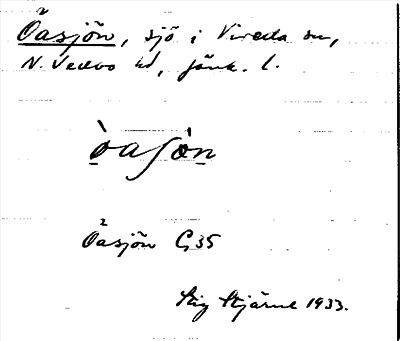 Öasjön, sjö i Vireda sn,
N. Vedbo hd, Jönk. l.
òaʃòn
Öasjön G35
Stig Stjärne 1933.